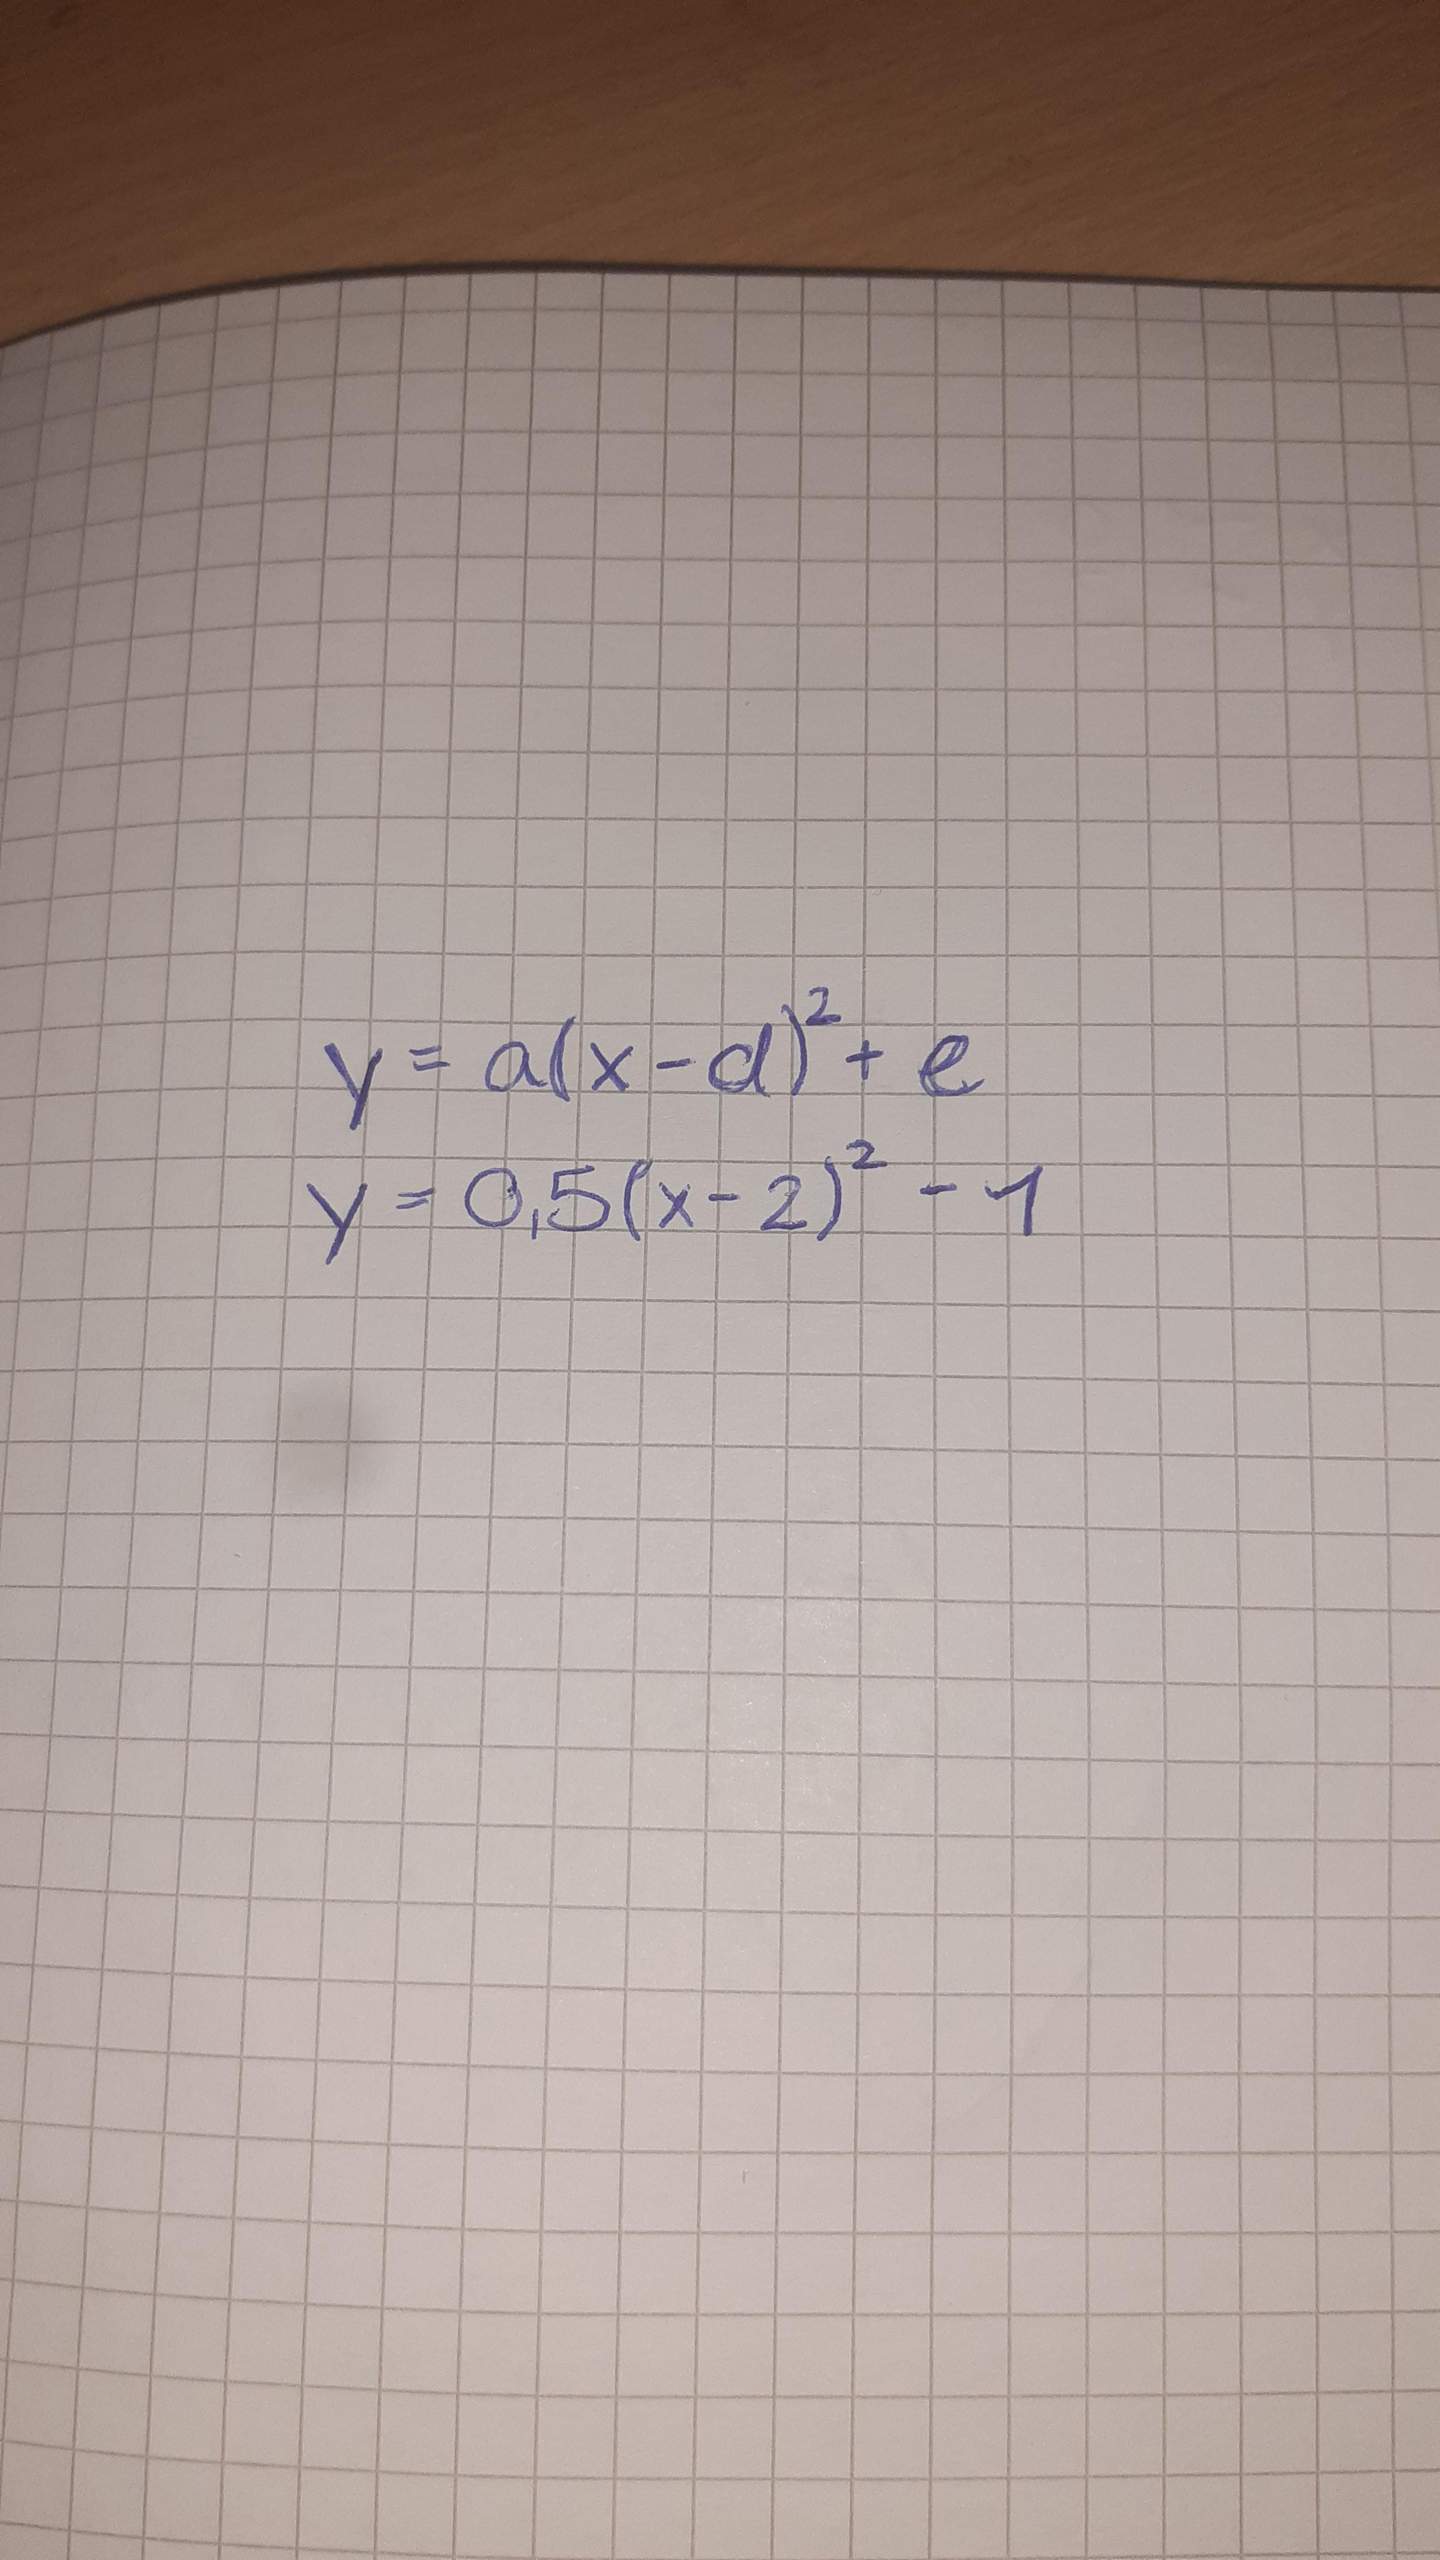 y = a(x-d)² + e
y = 0,5(x-2)² - 1